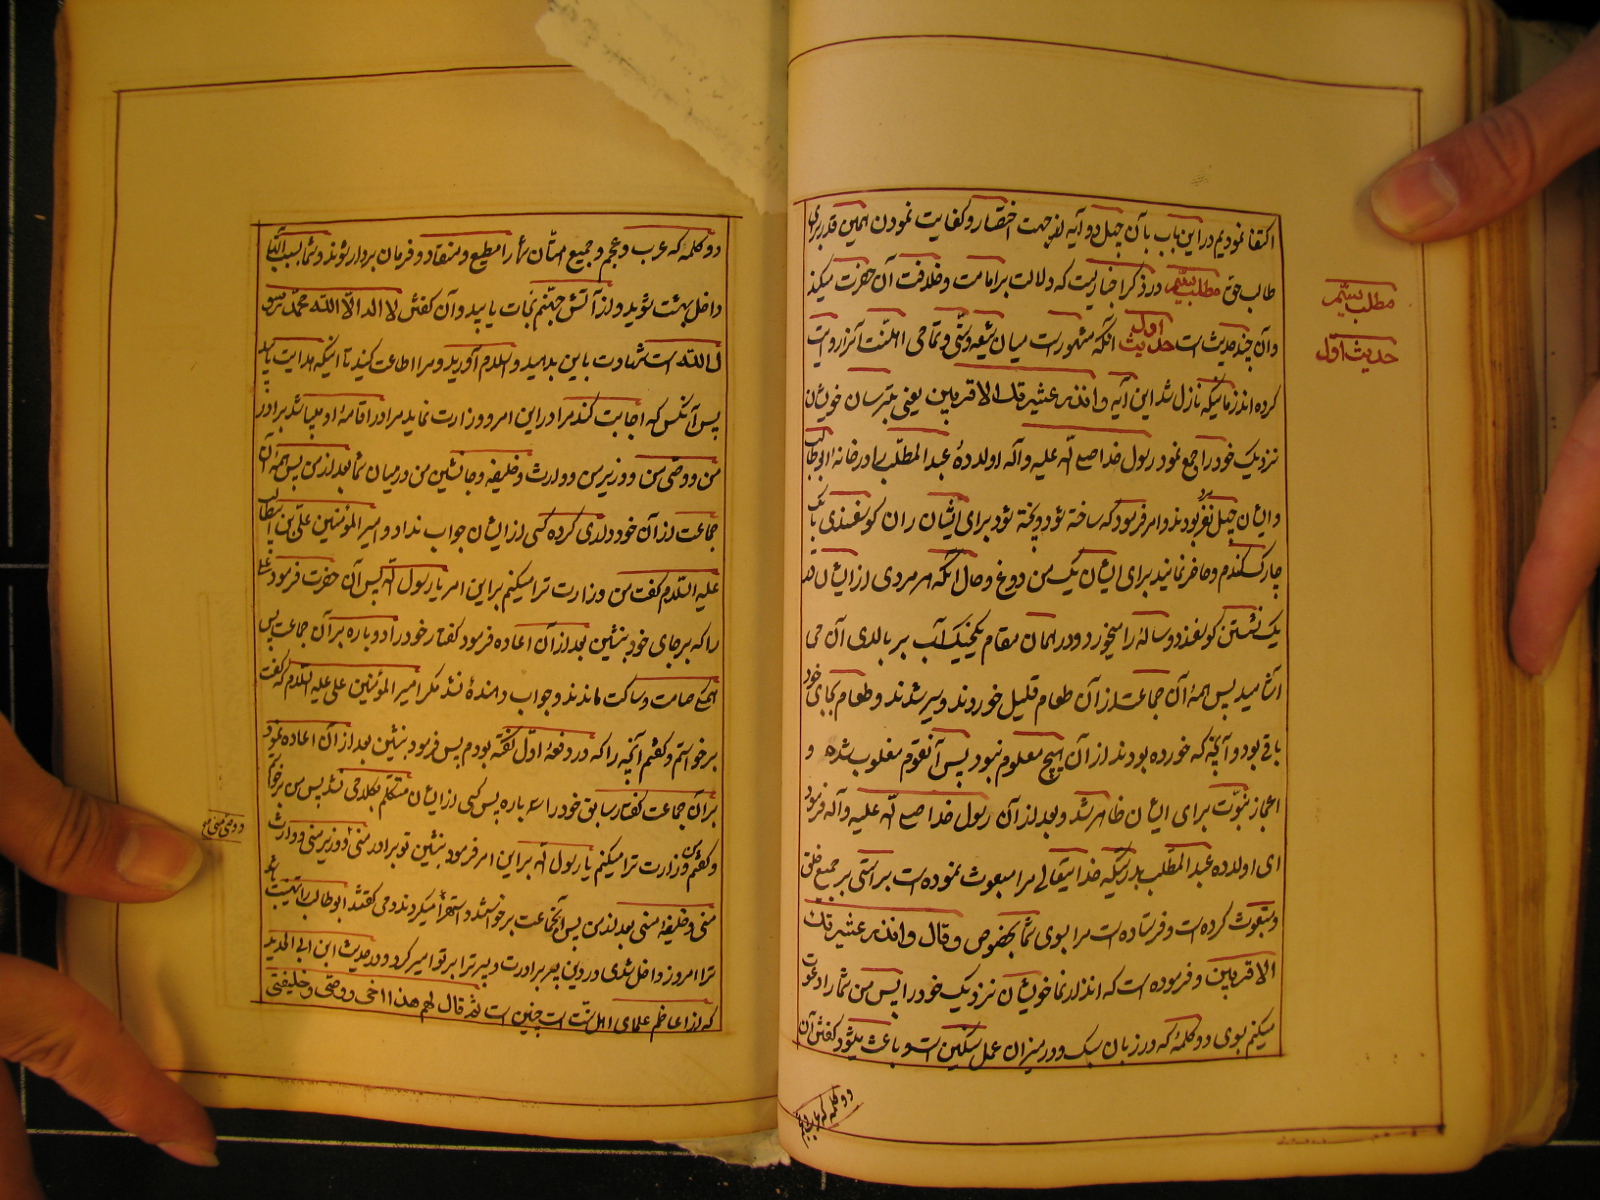 اکتفا نمودیم در این باب بآن چهل دو آیه از جهت اختصار و کفایت نمودن همین قدر برای
طالب حق مطلب سیّم در ذکر اخباریست که دلالت بر امامت و خلافت آن حضرت میکند
مطلب سیّم
و آن چند حدیث است حدیث اول آنکه مشهور است میان شیعه و سنّی و تمامی اهل سنّت آنرا روایت
حدیث اوّل
کرده اند زمانیکه نازل شد این آیه وانذر عشیرتك الاقربین یعنی بترسان خویشان
نزدیک خود را جمع نمود رسول خدا صلی الله علیه وآله اولاده عبد المطلب را در خانه ابو طالب
و ایشان چهل نفر بودند و امر فرمود که ساخته شود و پخته شود برای ایشان ران کوسفندی با یک
چارک کندم و حاضر نمایند برای ایشان یک من دوغ و حال آنکه هر مردی از ایشان در
یک نشستن کوسفند دو ساله را میخورد و در همان مقام یکخیک آب بر بالای آن می
آشامید پس همه آن جماعت از آن طعام قلیل خوردند و سیر شدند و طعام بجای خود
باقی بود و آنچه که خورده بودند از آن هیچ معلوم نبود پس آنقوم مغلوب شده و
اعجاز نبوّت برای ایشان ظاهر شد و بعد از آن رسول خدا صلی الله علیه وآله فرمود
ای اولاده عبد المطلب بدرستیکه خدایتعالی مرا مبعوث نموده است براستی بر جمیع خلق
و مبعوث کرده است و فرستاده است مرا بسوی شما بخصوص وقال وانذر عشیرتك
الاقربین و فرموده است که انذار نما خویشان نزدیک خود را پس من شما را دعوت
میکنم بسوی دو کلمهٔ که در زبان سبک و در میزان عمل سنکین است و باعث میشود کفتن آن
دو کلمه که عرب و عجم
دو کلمهٔ که عرب و عجم و جمیع امتّان شما را مطیع و منقاد و فرمان بردار شوند و شما بسبب آنها
داخل بهشت شوید و از آتش جهنّم نجات یابید و آن کفتن لا اله الاّ الله محمّد رسو
ل الله است شهادت باین بدهید و اسلام آورید و مرا اطاعت کنید تا اینکه هدایت یابید
پس آنکس که اجابت کند مرا در این امر و وزارت نماید مرا در اقامهٔ او میباشد برادر
من و وصّی من و وزیر من و وارث و خلیفه و جانشین من در میان شما بعد از من پس همه آن
جماعت از آن خود داری کرده کسی از ایشان جواب نداد و امیر المؤمنین علی بن ابیطالب
علیه السّلام کفت من وزارت ترا میکنم بر این امر یا رسول الله پس آن حضرت فرمود علی
را که بر جای خود بنشین بعد از آن اعاده فرمود کفتار خود را دوباره بر آن جماعت پس
همکی صامت و ساکت ماندند و جواب دهندهٔ نشد مکر امیر المؤمنین علی علیه السّلام که کفت
برخواستم و کفتم آنچه را که در دفعهٔ اوّل کفته بودم پس فرمود بنشین بعد از آن اعاده نمود
بر آن جماعت کفتار سابق خود را سه باره پس کسی از ایشان متکلّم بکلامی نشد پس من برخواستم
و کفتم من وزارت ترا میکنم یا رسول الله بر این امر فرمود بنشین تو برادر منی و وزیر منی و وارث
و وصّی منی
منی و خلیفهٔ منی بعد از من پس آنجماعت برخواستند و استهزأ میکردند و می کفتند ابو طالب را تهنیت باد
ترا امروز داخل شدی در دین پسر برادرت و پسر ترا بر تو امیر کرد و در حدیث ابن ابی الحدید
که از اعاظم علمای اهل سنّت است چنین است ثم قال لهم هذا اخی و وصّی و خلیفتی